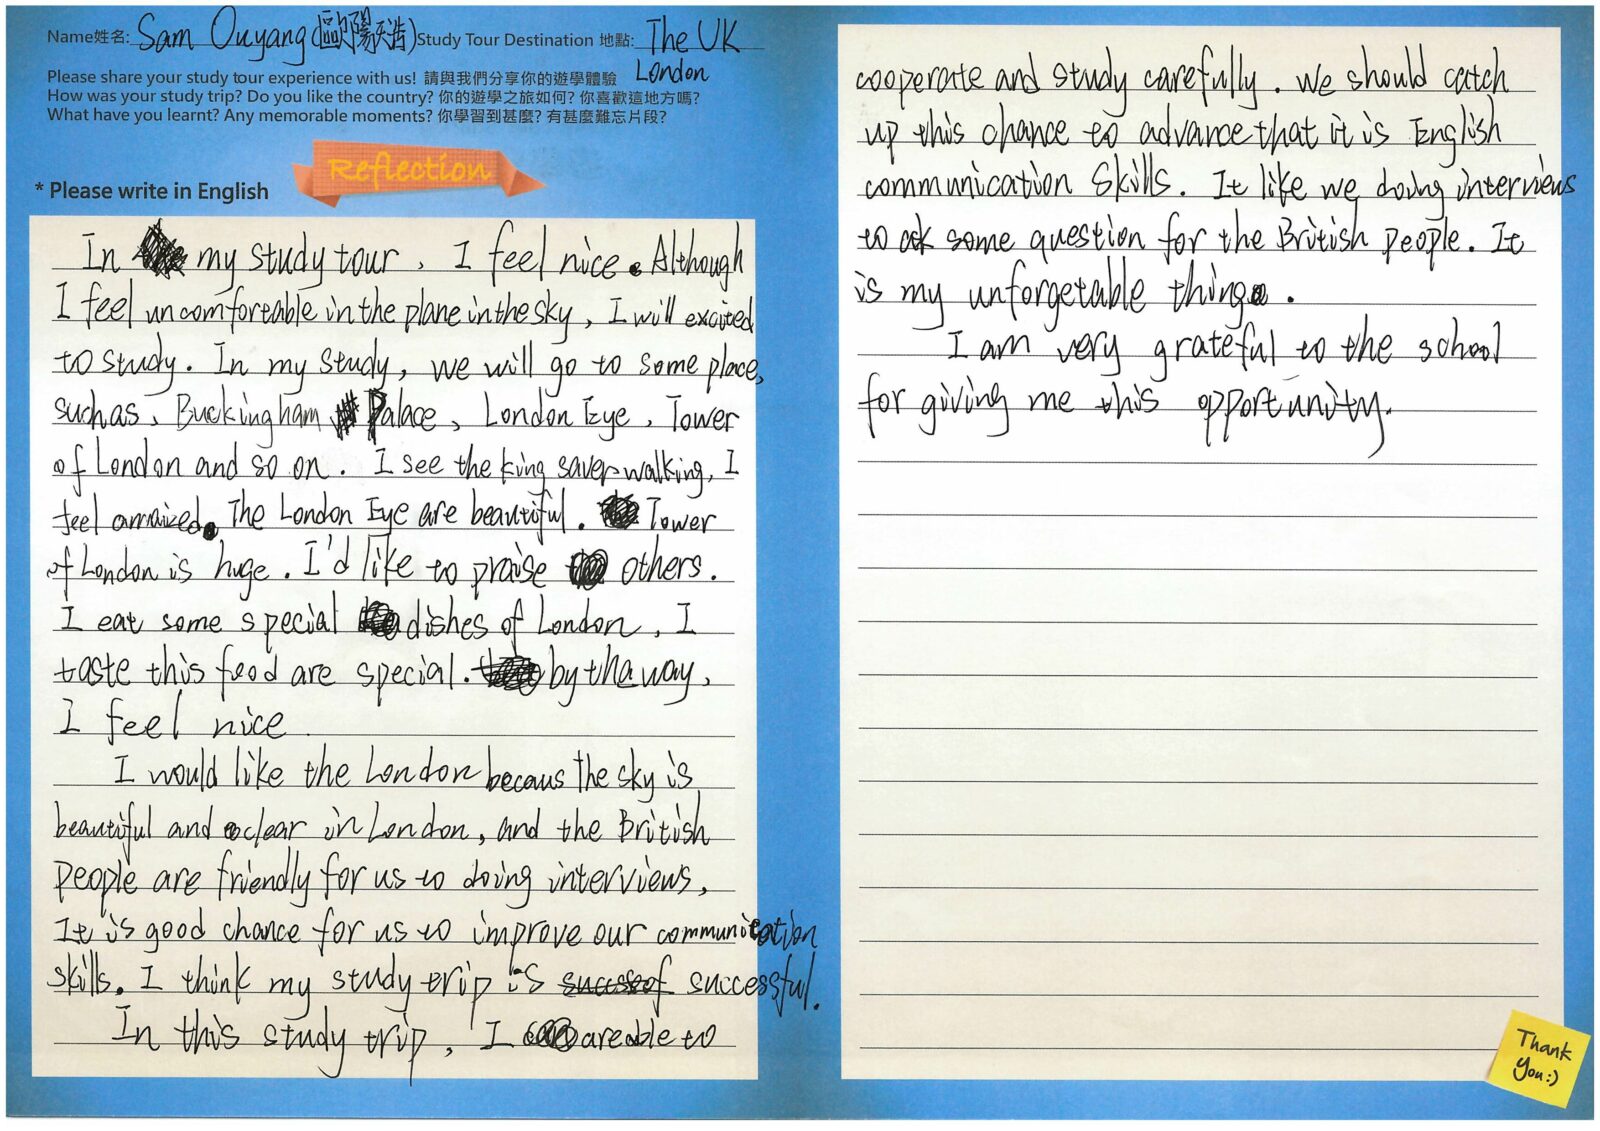 Name姓名: Sam Ouyang (歐陽天浩) Study Tour Destination 地點: The UK
London
Please share your study tour experience with us! 請與我們分享你的遊學體驗
How was your study trip? Do you like the country? 你的遊學之旅如何? 你喜歡這地方嗎?
What have you learnt? Any memorable moments? 你學習到甚麼? 有甚麼難忘片段?
Reflection
* Please write in English
In my study tour, I feel nice. Although
I feel uncomforteable in the plane in the sky, I will excited
to study. In my study, we will go to some place,
such as, Buckingham Palace, London Eye, Tower
of London and so on. I see the king saver walking, I
feel amaized. The London Eye are beautiful. Tower
of London is huge. I'd like to praise others.
I eat some special dishes of London, I
taste this food are special. by tha way,
I feel nice.
I would like the London becaus the sky is
beautiful and clear in London, and the British
People are friendly for us to doing interviews,
It is good chance for us to improve our communication
skills. I think my study trip is successful.
In this study trip, I are able to
cooperate and study carefully. We should catch
up this chance to advance that it is English
communication skills. It like we doing interviews
to ask some question for the British people. It
is my unforgetable thing.
I am very grateful to the school
for giving me this opportunity.
Thank
You:)